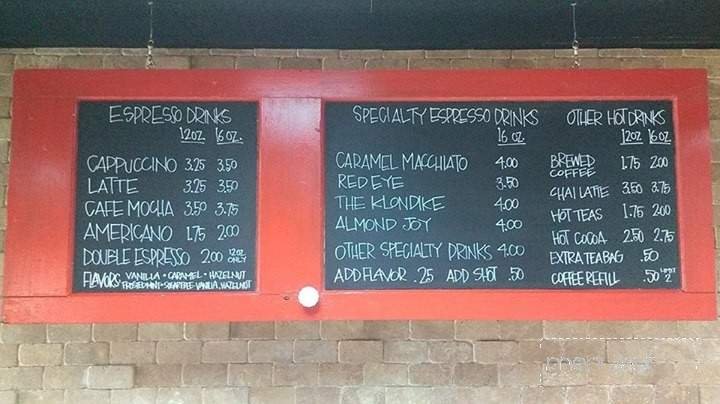 ESPRESSO DRINKS
12 OZ. 16 OZ.
CAPPUCCINO 3.25 3.50
LATTE 3.25 3.50
CAFE MOCHA 3.50 3.75
AMERICANO 1.75 2.00
DOUBLE ESPRESSO 2.00 12 OZ ONLY
FLAVORS: VANILLA • CARAMEL • HAZELNUT
FROSTED MINT • SUGARFREE: VANILLA, HAZELNUT
SPECIALTY ESPRESSO DRINKS
16 OZ
CARAMEL MACCHIATO 4.00
RED EYE 3.50
THE KLONDIKE 4.00
ALMOND JOY 4.00
OTHER SPECIALTY DRINKS 4.00
ADD FLAVOR .25 ADD SHOT .50
OTHER HOT DRINKS
12OZ 16 OZ.
BREWED COFFEE 1.75 2.00
CHAI LATTE 3.50 3.75
HOT TEAS 1.75 2.00
HOT COCOA 2.50 2.75
EXTRA TEA BAG .50
COFFEE REFILL .50 LIMIT 2